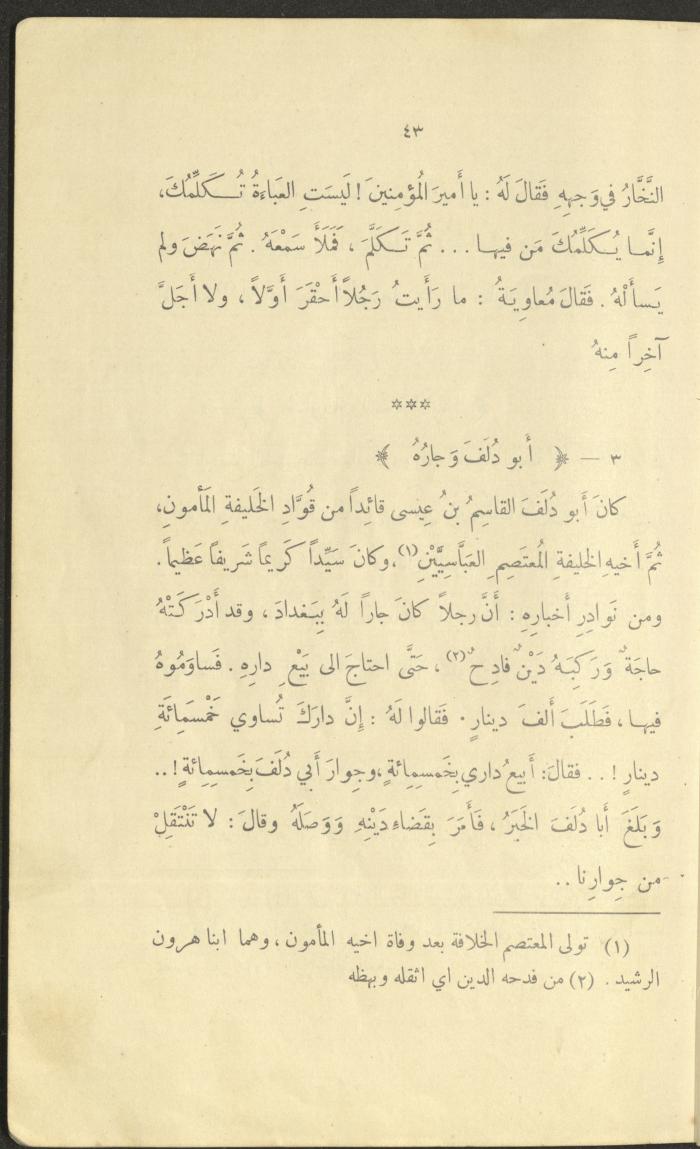 ٤٣
النَّخَّارُ في وَجهِهِ فَقالَ لَهُ : يا أَميرَ المُؤمِنينَ ! لَيسَتِ العَباءَةُ تُـكَلِّمُكَ،
إِنَّمـا يُـكَلِّمُكَ مَن فيهـا ... ثُمَّ تَـكَلَّمَ ، فَمَلَأَ سَمْعَهُ . ثُمَّ نَهَضَ ولم
يَسأَلْهُ . فَقالَ مُعاوِيَةُ : ما رَأَيتُ رَجُلاً أَحْقَرَ أَوَّلاً ، ولا أَجَلَّ
آخِراً مِنهُ
***
٣ — ﴿ أَبو دُلَفَ وَجارُهُ ﴾
كانَ أَبو دُلَفَ القاسِمُ بنُ عِيسى قائِداً من قُوَّادِ الخَليفةِ المَأمونِ،
ثُمَّ أَخيهِ الخليفةِ المُعتَصِمِ العَبَّاسِيَّيْنِ(١)، وكانَ سَيِّداً كَريماً شَريفاً عَظيماً.
ومن نَوادِرِ أَخبارِهِ : أَنَّ رجلاً كانَ جاراً لَهُ بِبَغدادَ ، وقد أَدْرَكَتْهُ
حاجَةٌ وَرَكِبَـهُ دَيْنٌ فادِحٌ(٢) ، حَتَّى احتاجَ الى بَيْعِ دارِهِ . فَساوَمُوهُ
فيهـا ، فَطَلَبَ أَلفَ دينارٍ . فَقالوا لَهُ : إِنَّ دارَكَ تُساوي خَمْسَمِائَةِ
دينارٍ ! .. فقالَ: أَبيعُ داري بِخَمسِمِائةٍ ،وجِوارَ أَبي دُلَفَ بِخَمسِمِائةٍ !..
وَبَلَغَ أَبا دُلَفَ الخَبَرُ ، فَأَمَرَ بِقَضاءِ دَيْنِهِ وَوَصَلَهُ وقالَ : لا تَنْتَقِلْ
من جِوارِنا ..
(١) تولى المعتصم الخلافة بعد وفاة اخيه المأمون ، وهما ابنا هرون
الرشيد . (٢) من فدحه الدين اي اثقله وبهظه